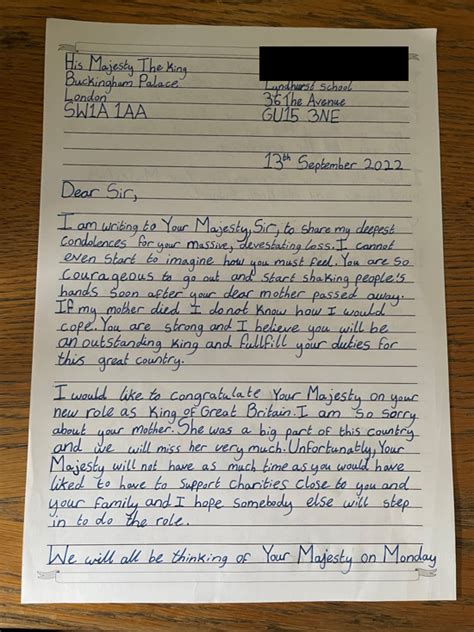 His Majesty The King
Buckingham Palace
London
SW1A 1AA
Lyndhurst School
36 The Avenue
GU15 3NE
13th September 2022
Dear Sir,
I am writing to Your Majesty, Sir, to share my deepest
condolences for your massive, devestating loss. I cannot
even start to imagine how you must feel. You are so
courageous to go out and start shaking people's
hands soon after your dear mother passed away.
If my mother died I do not know how I would
cope. You are strong and I believe you will be
an outstanding king and fullfill your duties for
this great country.
I would like to congratulate Your Majesty on your
new role as King of Great Britain. I am so sorry
about your mother. She was a big part of this country
and we will miss her very much. Unfortunatly, Your
Majesty will not have as much time as you would have
liked to have to support charities close to you and
your family and I hope somebody else will step
in to do the role.
We will all be thinking of Your Majesty on Monday